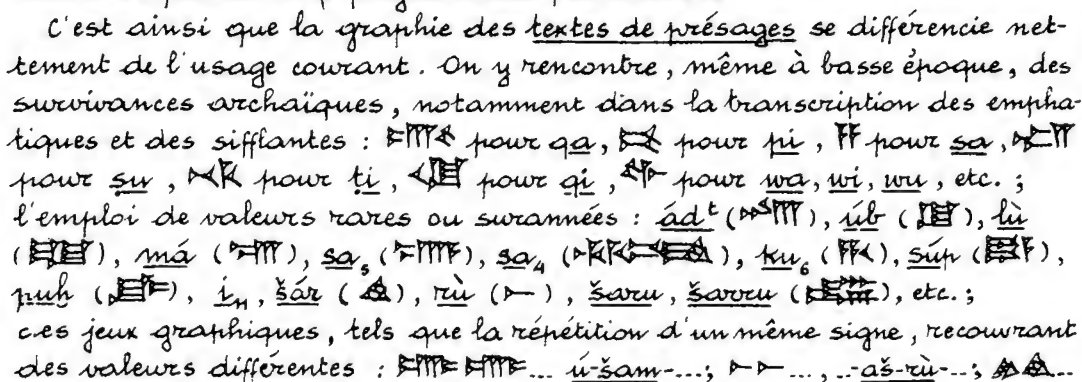 C'est ainsi que la graphie des textes de présages se différencie net-
tement de l'usage courant. On y rencontre, même à basse époque, des
survivances archaïques, notamment dans la transcription des empha-
tiques et des sifflantes : pour qa, pour pi, pour sa,
pour ṣu, pour ṭi, pour qi, pour wa, wi, wu, etc. ;
l'emploi de valeurs rares ou surannées : ád/t ( ), úb ( ), lù
( ), má ( ), sa₅ ( ), sa₄ ( ), ku₆ ( ), súp ( ),
puḫ ( ), šár ( ), rù ( ), šaru, šarru ( ), etc. ;
ces jeux graphiques, tels que la répétition d'un même signe, recouvrant
des valeurs différentes : ... ú-šam-...; ..., ..-aš-rù-...;